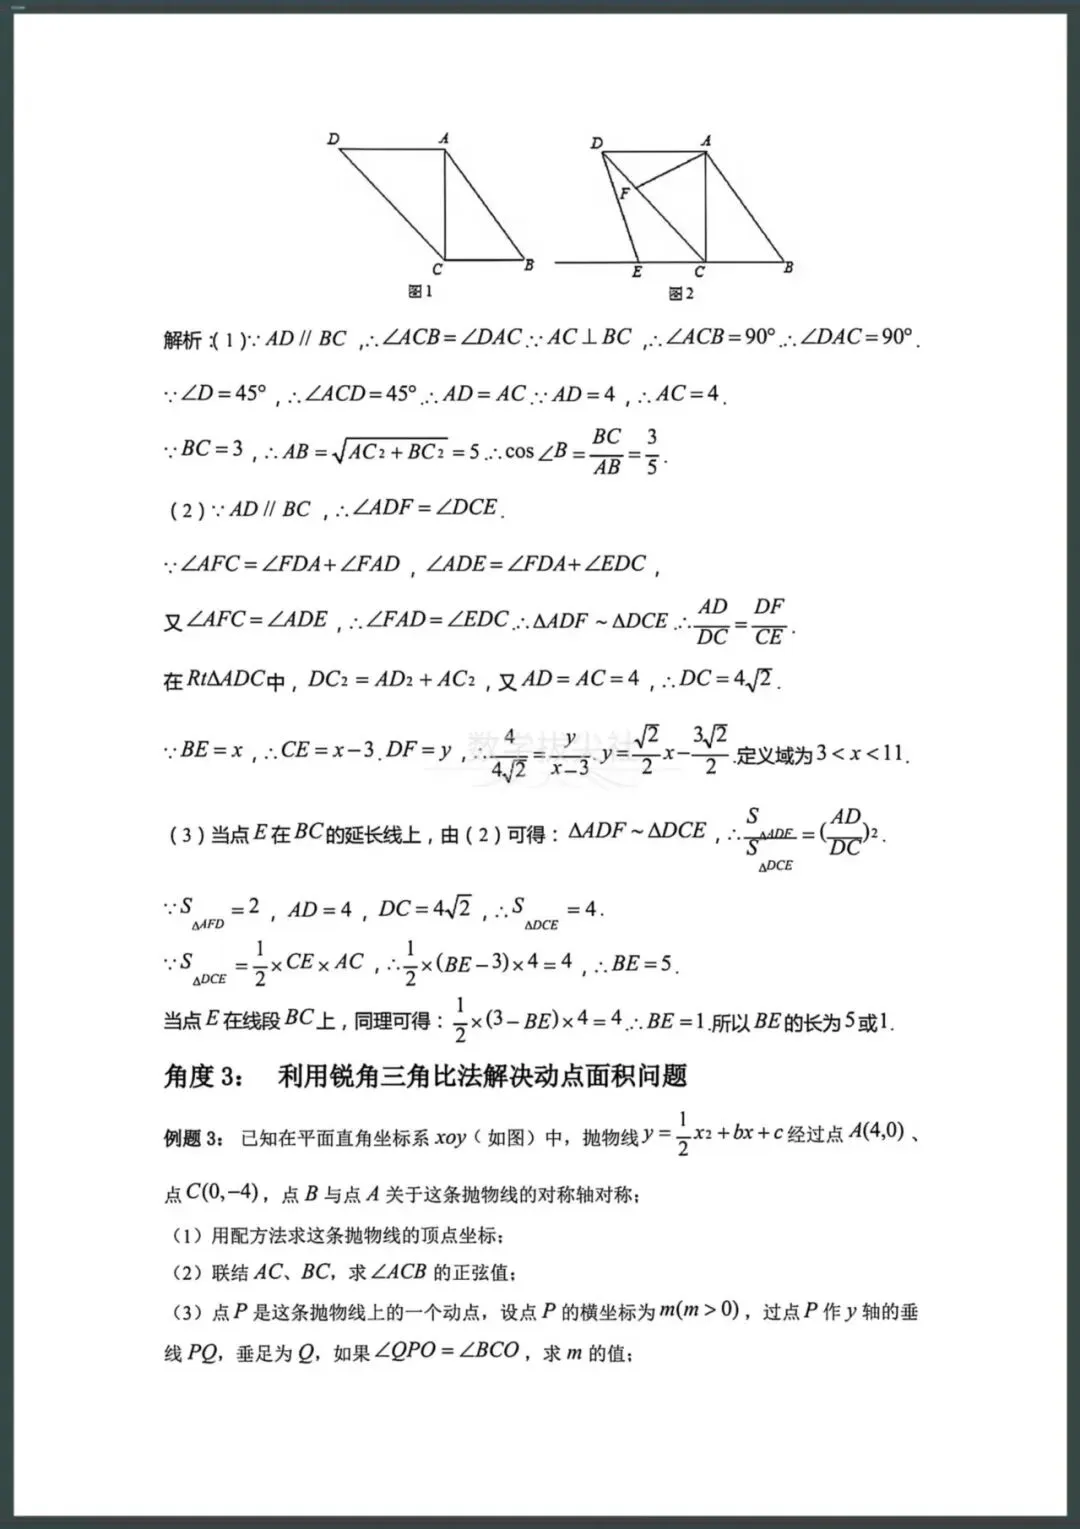 D A D A
F
C B E C B
图1 图2
解析:(1)∵ AD // BC ,∴∠ACB=∠DAC∵AC⊥BC ,∴∠ACB=90°∴∠DAC=90°.
∵∠D=45° ,∴∠ACD=45°∴AD=AC∵AD=4 ,∴AC=4.
∵BC=3 ,∴AB=√(AC2+BC2)=5∴cos∠B=BC/AB=3/5.
(2)∵AD // BC ,∴∠ADF=∠DCE.
∵∠AFC=∠FDA+∠FAD ,∠ADE=∠FDA+∠EDC ,
又∠AFC=∠ADE ,∴∠FAD=∠EDC∴ΔADF~ΔDCE∴AD/DC=DF/CE.
在RtΔADC中, DC2=AD2+AC2 ,又AD=AC=4 ,∴DC=4√2.
∵BE=x ,∴CE=x-3.DF=y ,∴4/4√2=y/x-3.y=√2/2x-3√2/2.定义域为3<x<11.
(3)当点E在BC的延长线上,由(2)可得: ΔADF~ΔDCE ,∴SΔADF/SΔDCE=(AD/DC)2.
∵SΔAFD=2 , AD=4 , DC=4√2 ,∴SΔDCE=4.
∵SΔDCE=1/2×CE×AC ,∴1/2×(BE-3)×4=4 ,∴BE=5.
当点E在线段BC上,同理可得:1/2×(3-BE)×4=4∴BE=1.所以BE的长为5或1.
角度 3: 利用锐角三角比法解决动点面积问题
例题 3: 已知在平面直角坐标系 xoy(如图)中,抛物线y=1/2x2+bx+c经过点 A(4,0)、
点C(0,-4),点 B 与点 A 关于这条抛物线的对称轴对称;
(1)用配方法求这条抛物线的顶点坐标;
(2)联结 AC、BC,求∠ACB 的正弦值;
(3)点 P 是这条抛物线上的一个动点,设点 P 的横坐标为m(m>0),过点 P 作 y 轴的垂
线 PQ,垂足为 Q,如果∠QPO=∠BCO,求 m 的值;
数学拔尖社